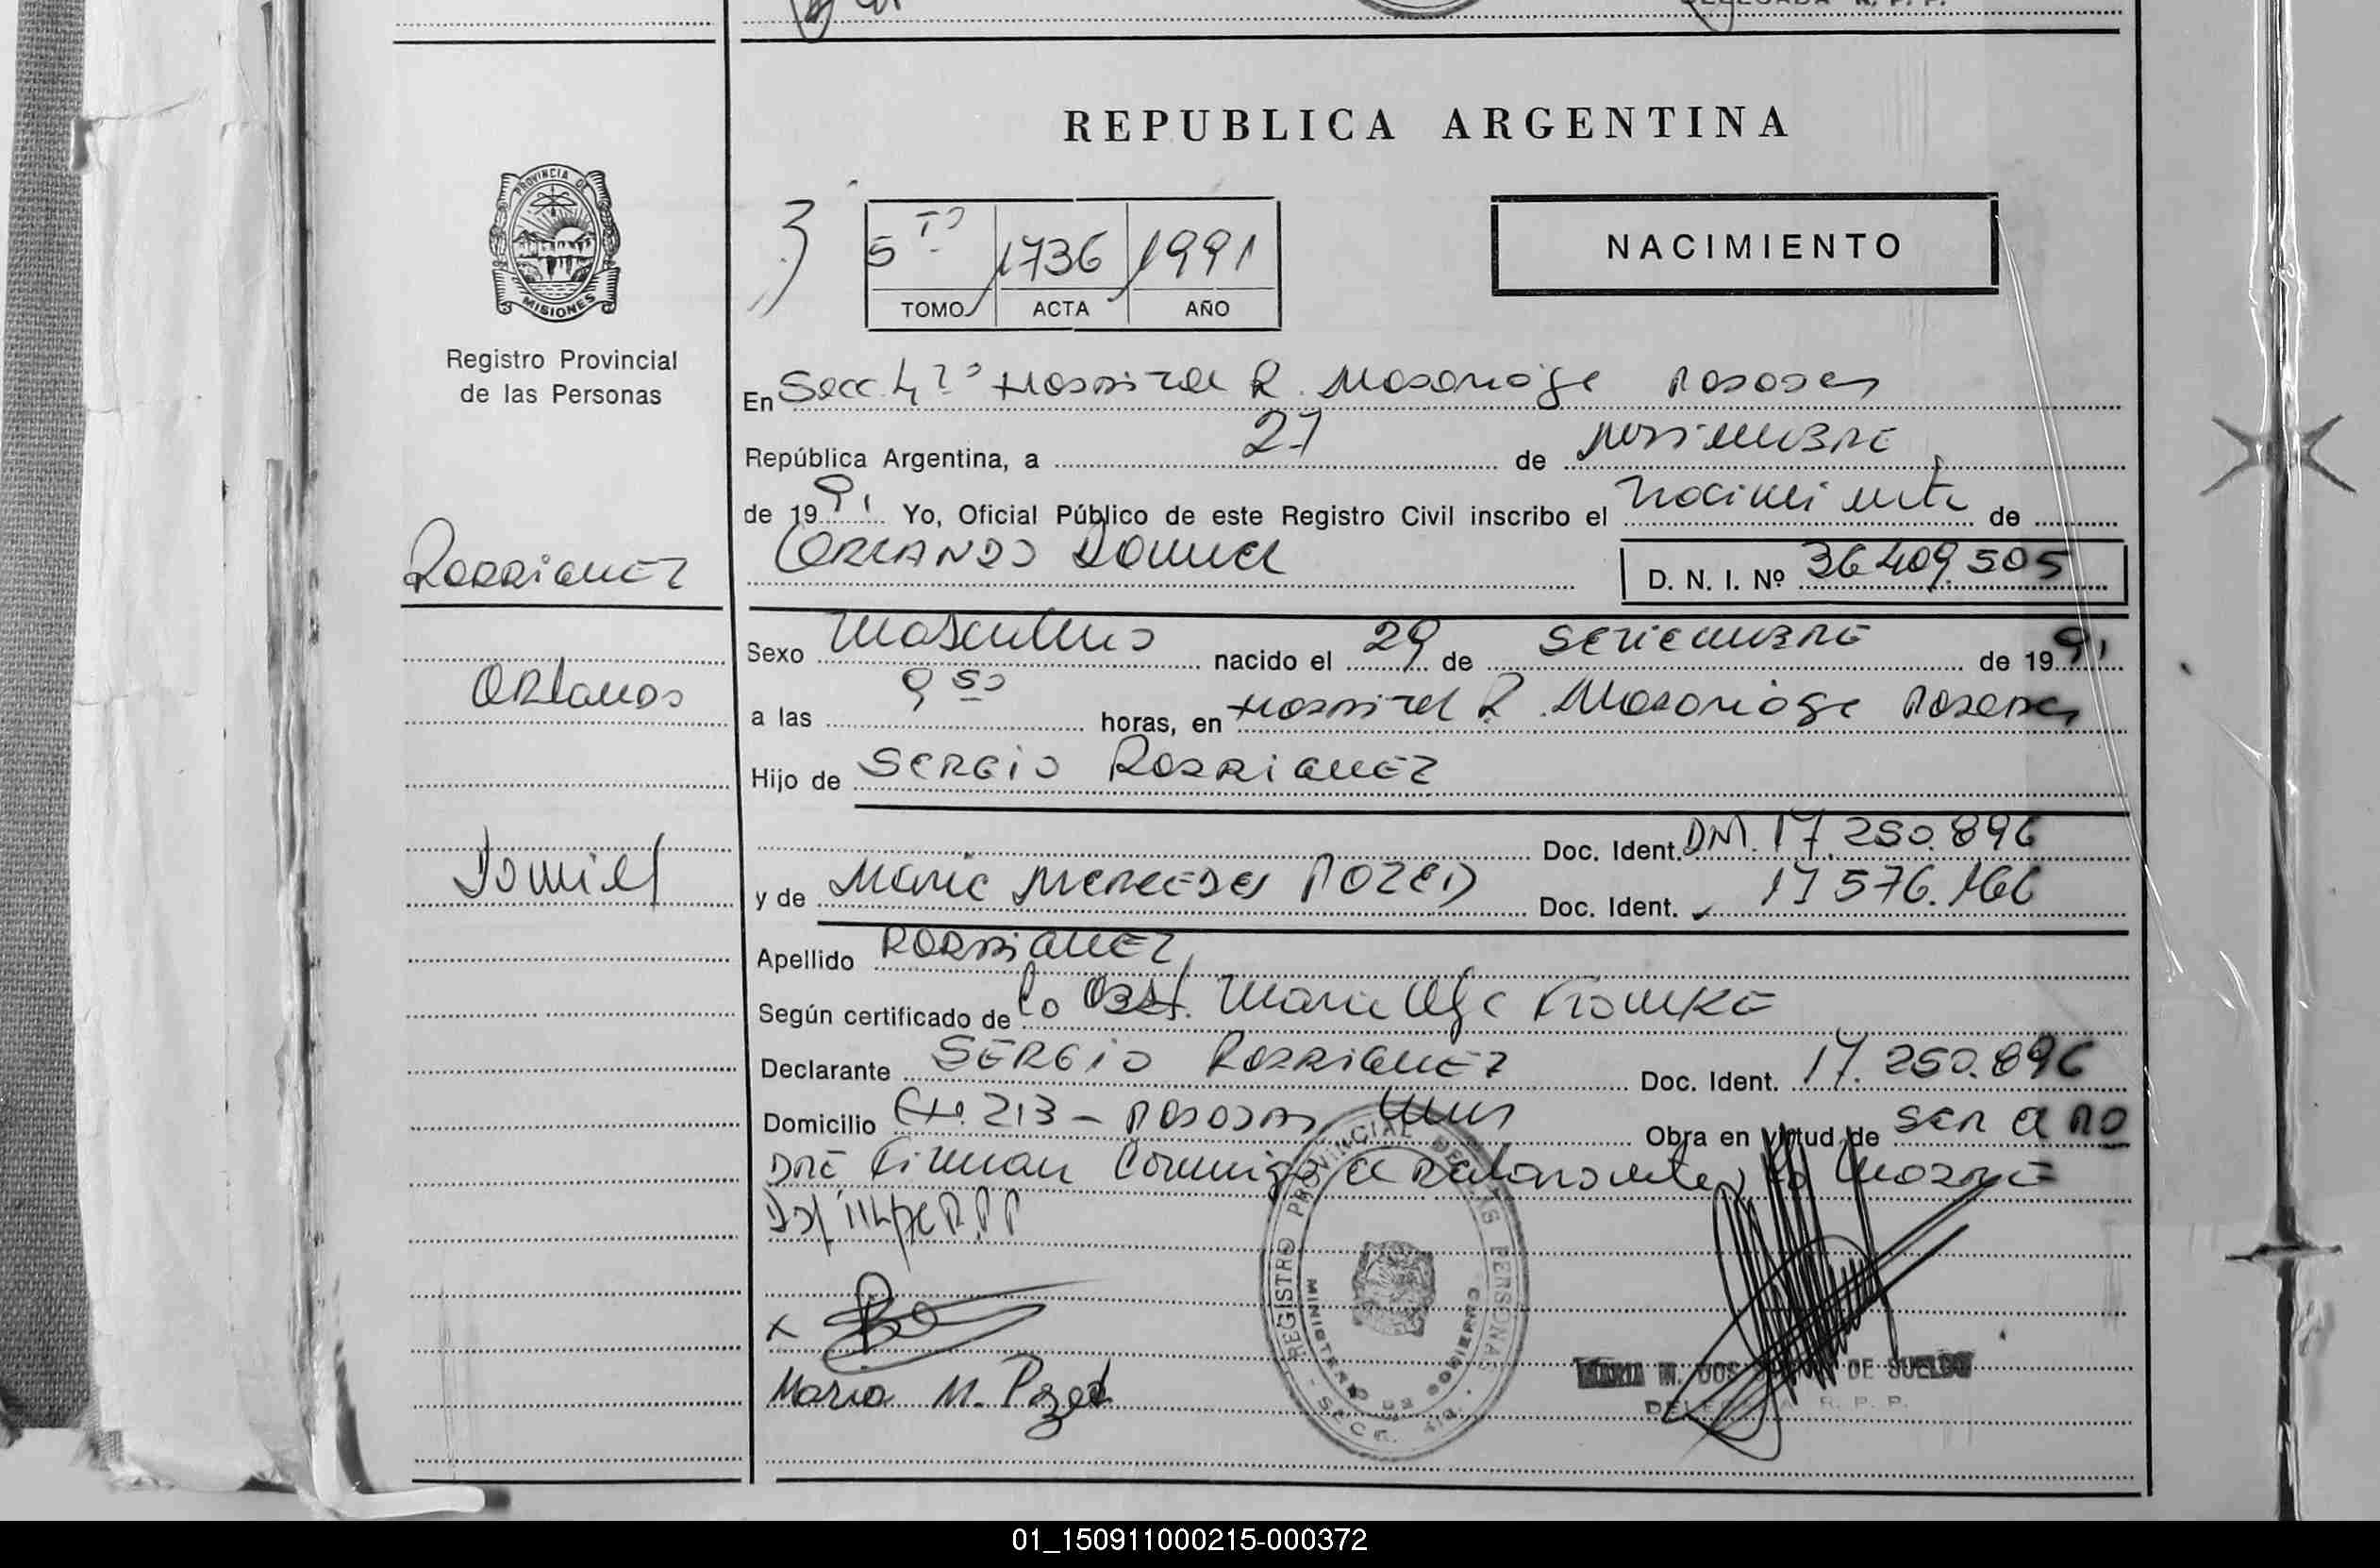 REPUBLICA ARGENTINA
PROVINCIA DE
MISIONES
Registro Provincial
de las Personas
5to 1736 1991
TOMO ACTA AÑO
NACIMIENTO
En Secc. 4ta Hospital R. Madariaga Posadas
República Argentina, a 27 de noviembre
de 1991 Yo, Oficial Público de este Registro Civil inscribo el nacimiento de
RODRIGUEZ
ORLANDO Daniel D. N. I. Nº 36.409.505
Sexo Masculino nacido el 29 de SETIEMBRE de 1991
Orlando
a las 9 50 horas, en Hospital R. Madariaga Posadas
Hijo de SERGIO RODRIGUEZ
Doc. Ident. DNI. 17.250.896
Daniel
y de Maria MERCEDES POZED Doc. Ident. 17.576.166
Apellido RODRIGUEZ
Según certificado de la Obst. Maria Olga
Declarante SERGIO RODRIGUEZ Doc. Ident. 17.250.896
Domicilio Ch. 213 - POSADAS Mnes Obra en virtud de SER el PA
DRE Firman Conmigo el Declarante y la MADRE
x
Maria M. Pozed
REGISTRO PROVINCIAL DE LAS PERSONAS
MINISTERIO DE GOBIERNO
MARIA M. DOS DE SUELDO
DELEGADA R. P. P.
01_150911000215-000372